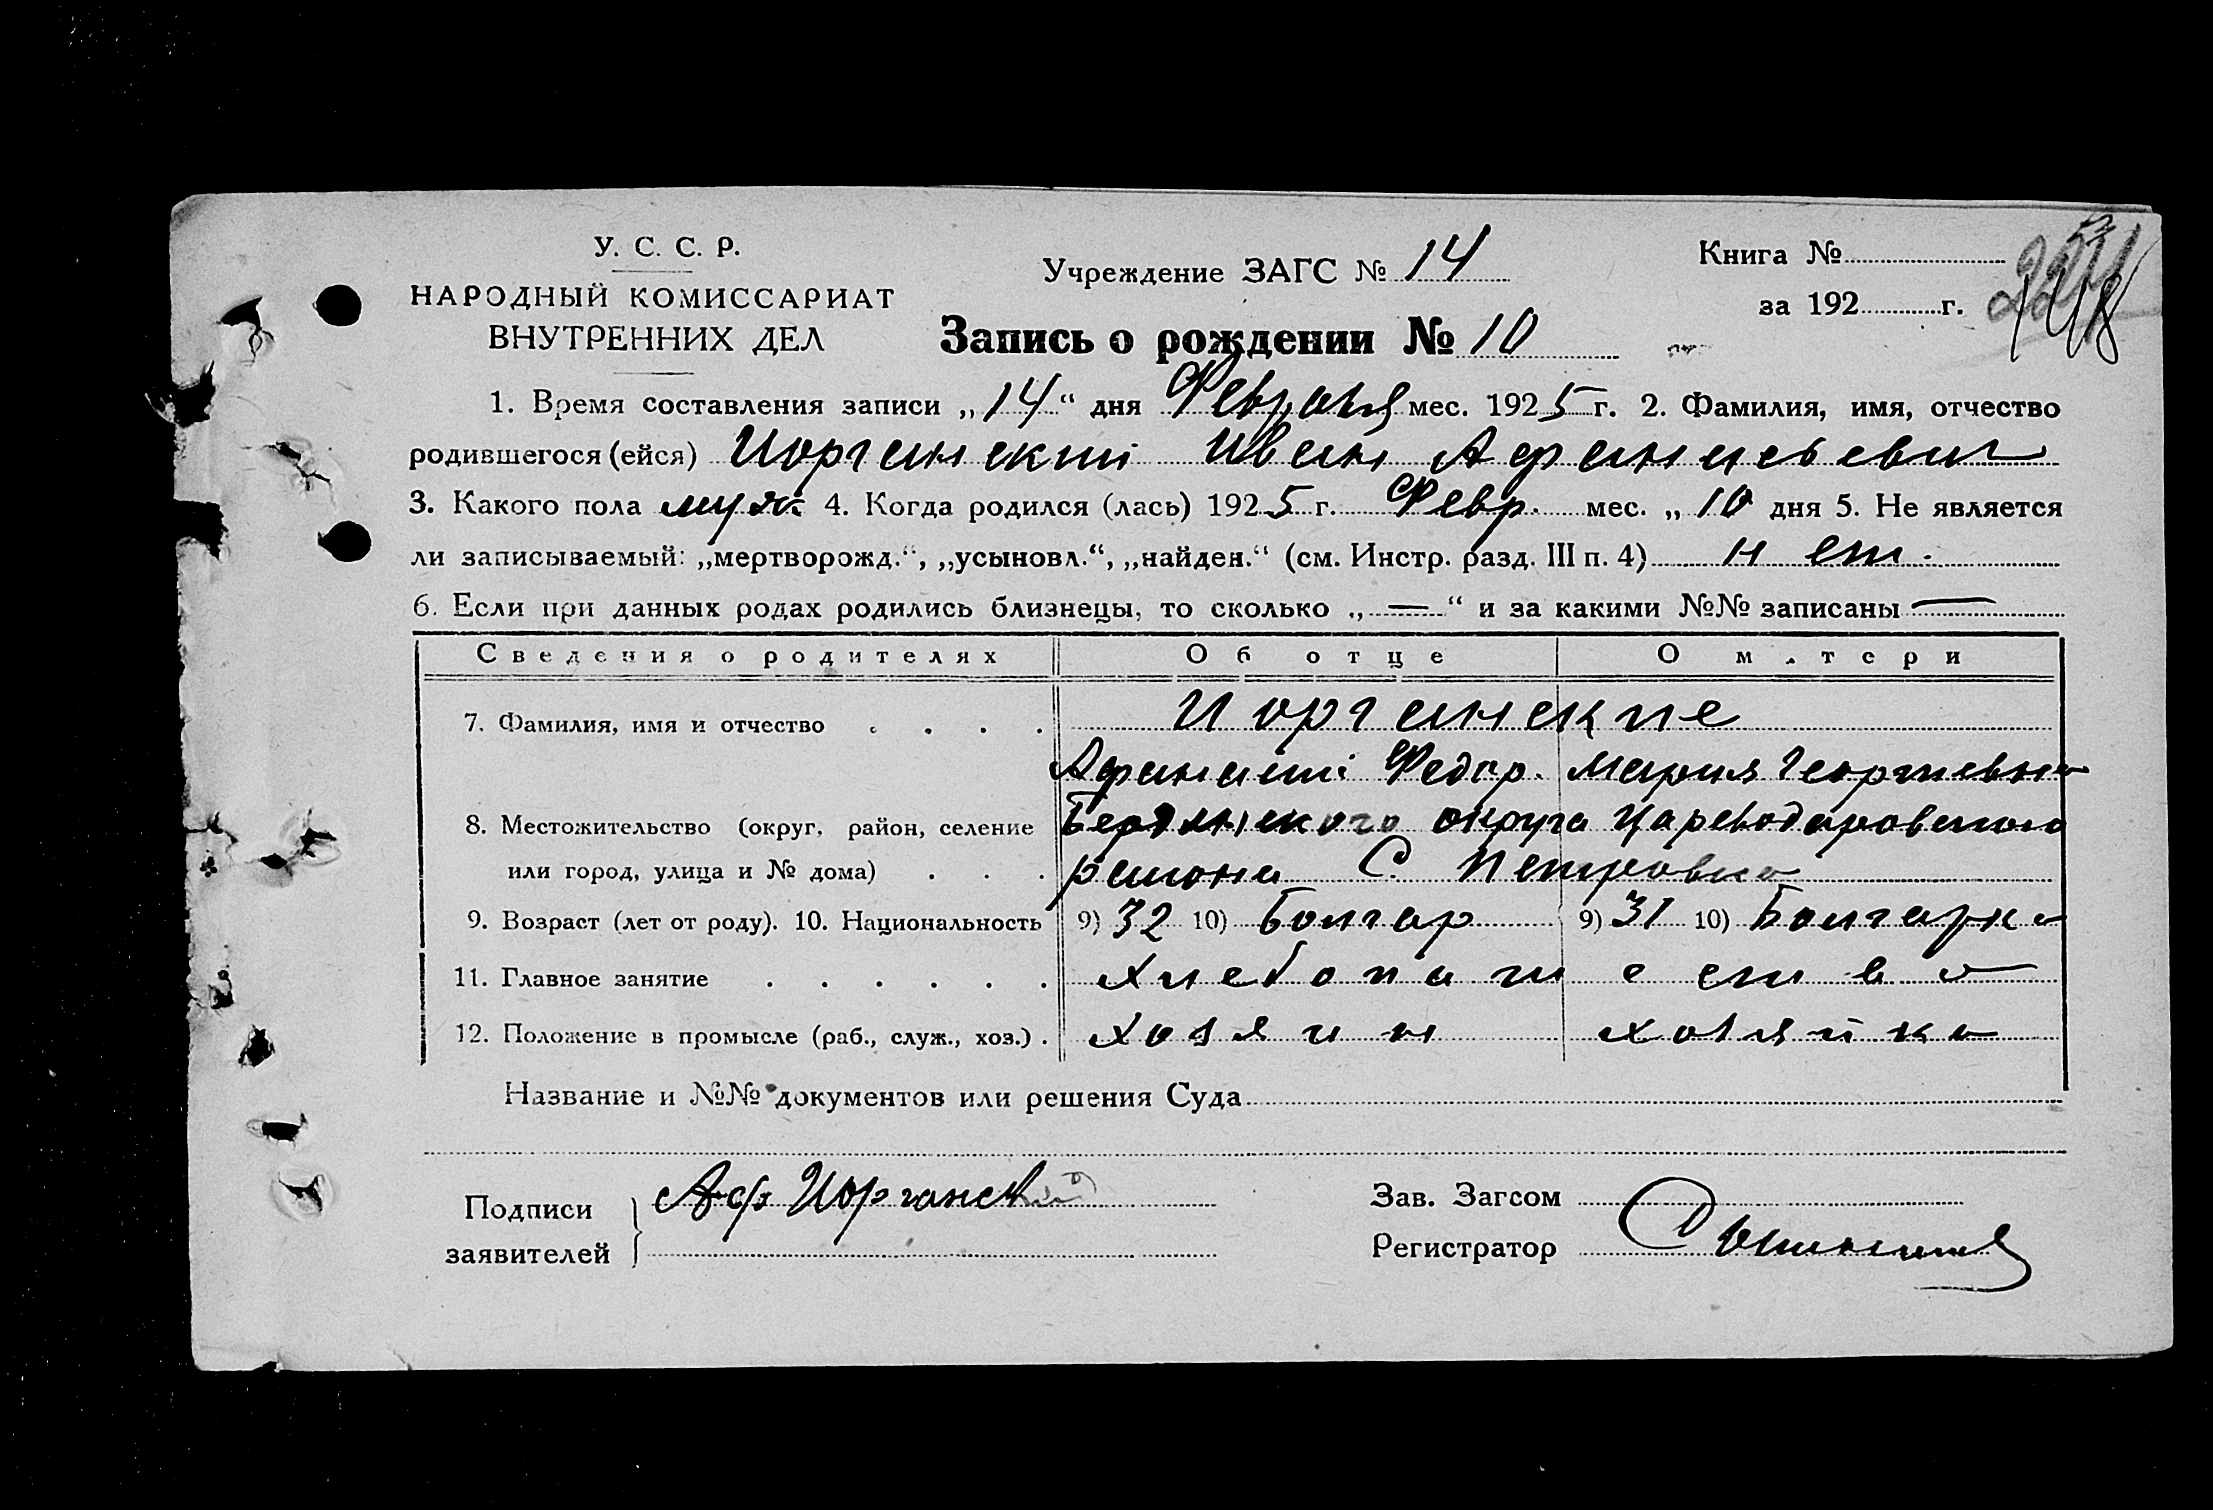 У. С. С. Р.
НАРОДНЫЙ КОМИССАРИАТ
ВНУТРЕННИХ ДЕЛ
Учреждение ЗАГС № 14
Книга №
за 192 г.
148
Запись о рождении № 10
1. Время составления записи „14“ дня Февраля мес. 1925 г. 2. Фамилия, имя, отчество
родившегося (ейся) Иорганский Иван Афанасьевич
3. Какого пола муж. 4. Когда родился (лась) 1925 г. Февр. мес. „ 10 дня 5. Не является
ли записываемый: „мертворожд.“, „усыновл.“, „найден.“ (см. Инстр. разд. III п. 4) нет.
6. Если при данных родах родились близнецы, то сколько „ — “ и за какими №№ записаны —
Сведения о родителях Об отце О м.тери
7. Фамилия, имя и отчество . . . . Иорганские
Афанасий Федор. Мария Георгиевна
8. Местожительство (округ, район, селение Бердянского округа Цареводаровского
или город, улица и № дома) . . . района С. Петровка
9. Возраст (лет от роду). 10. Национальность 9) 32 10) Болгар 9) 31 10) Болгарка
11. Главное занятие . . . . . . Хлебопашество
12. Положение в промысле (раб., служ., хоз.) . хозяин хозяйка
Название и №№ документов или решения Суда
Подписи
заявителей
Аф Иорганский
Зав. Загсом
Регистратор